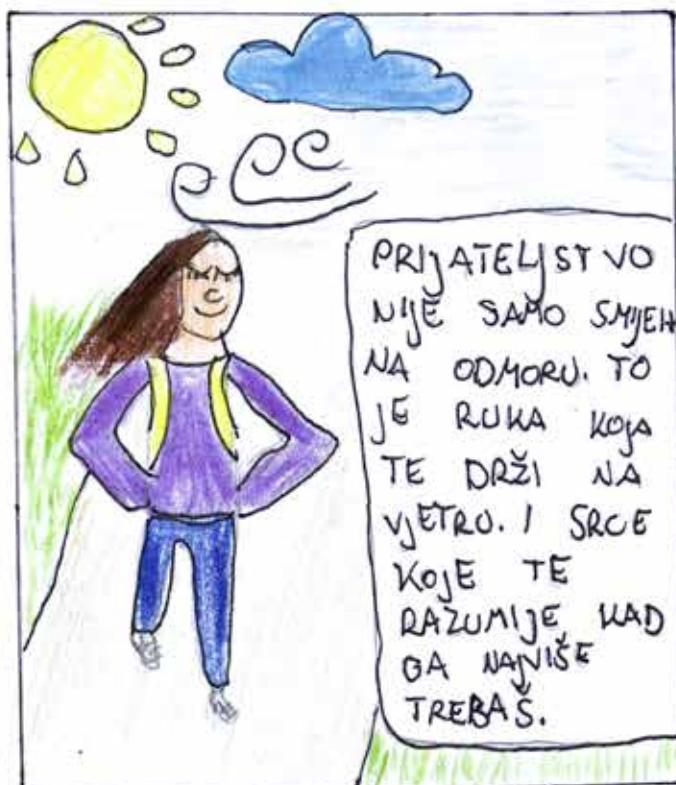 PRIJATELJSTVO
NIJE SAMO SMIJEH
NA ODMORU. TO
JE RUKA KOJA
TE DRŽI NA
VJETRU. I SRCE
KOJE TE
RAZUMIJE KAD
GA NAJVIŠE
TREBAŠ.